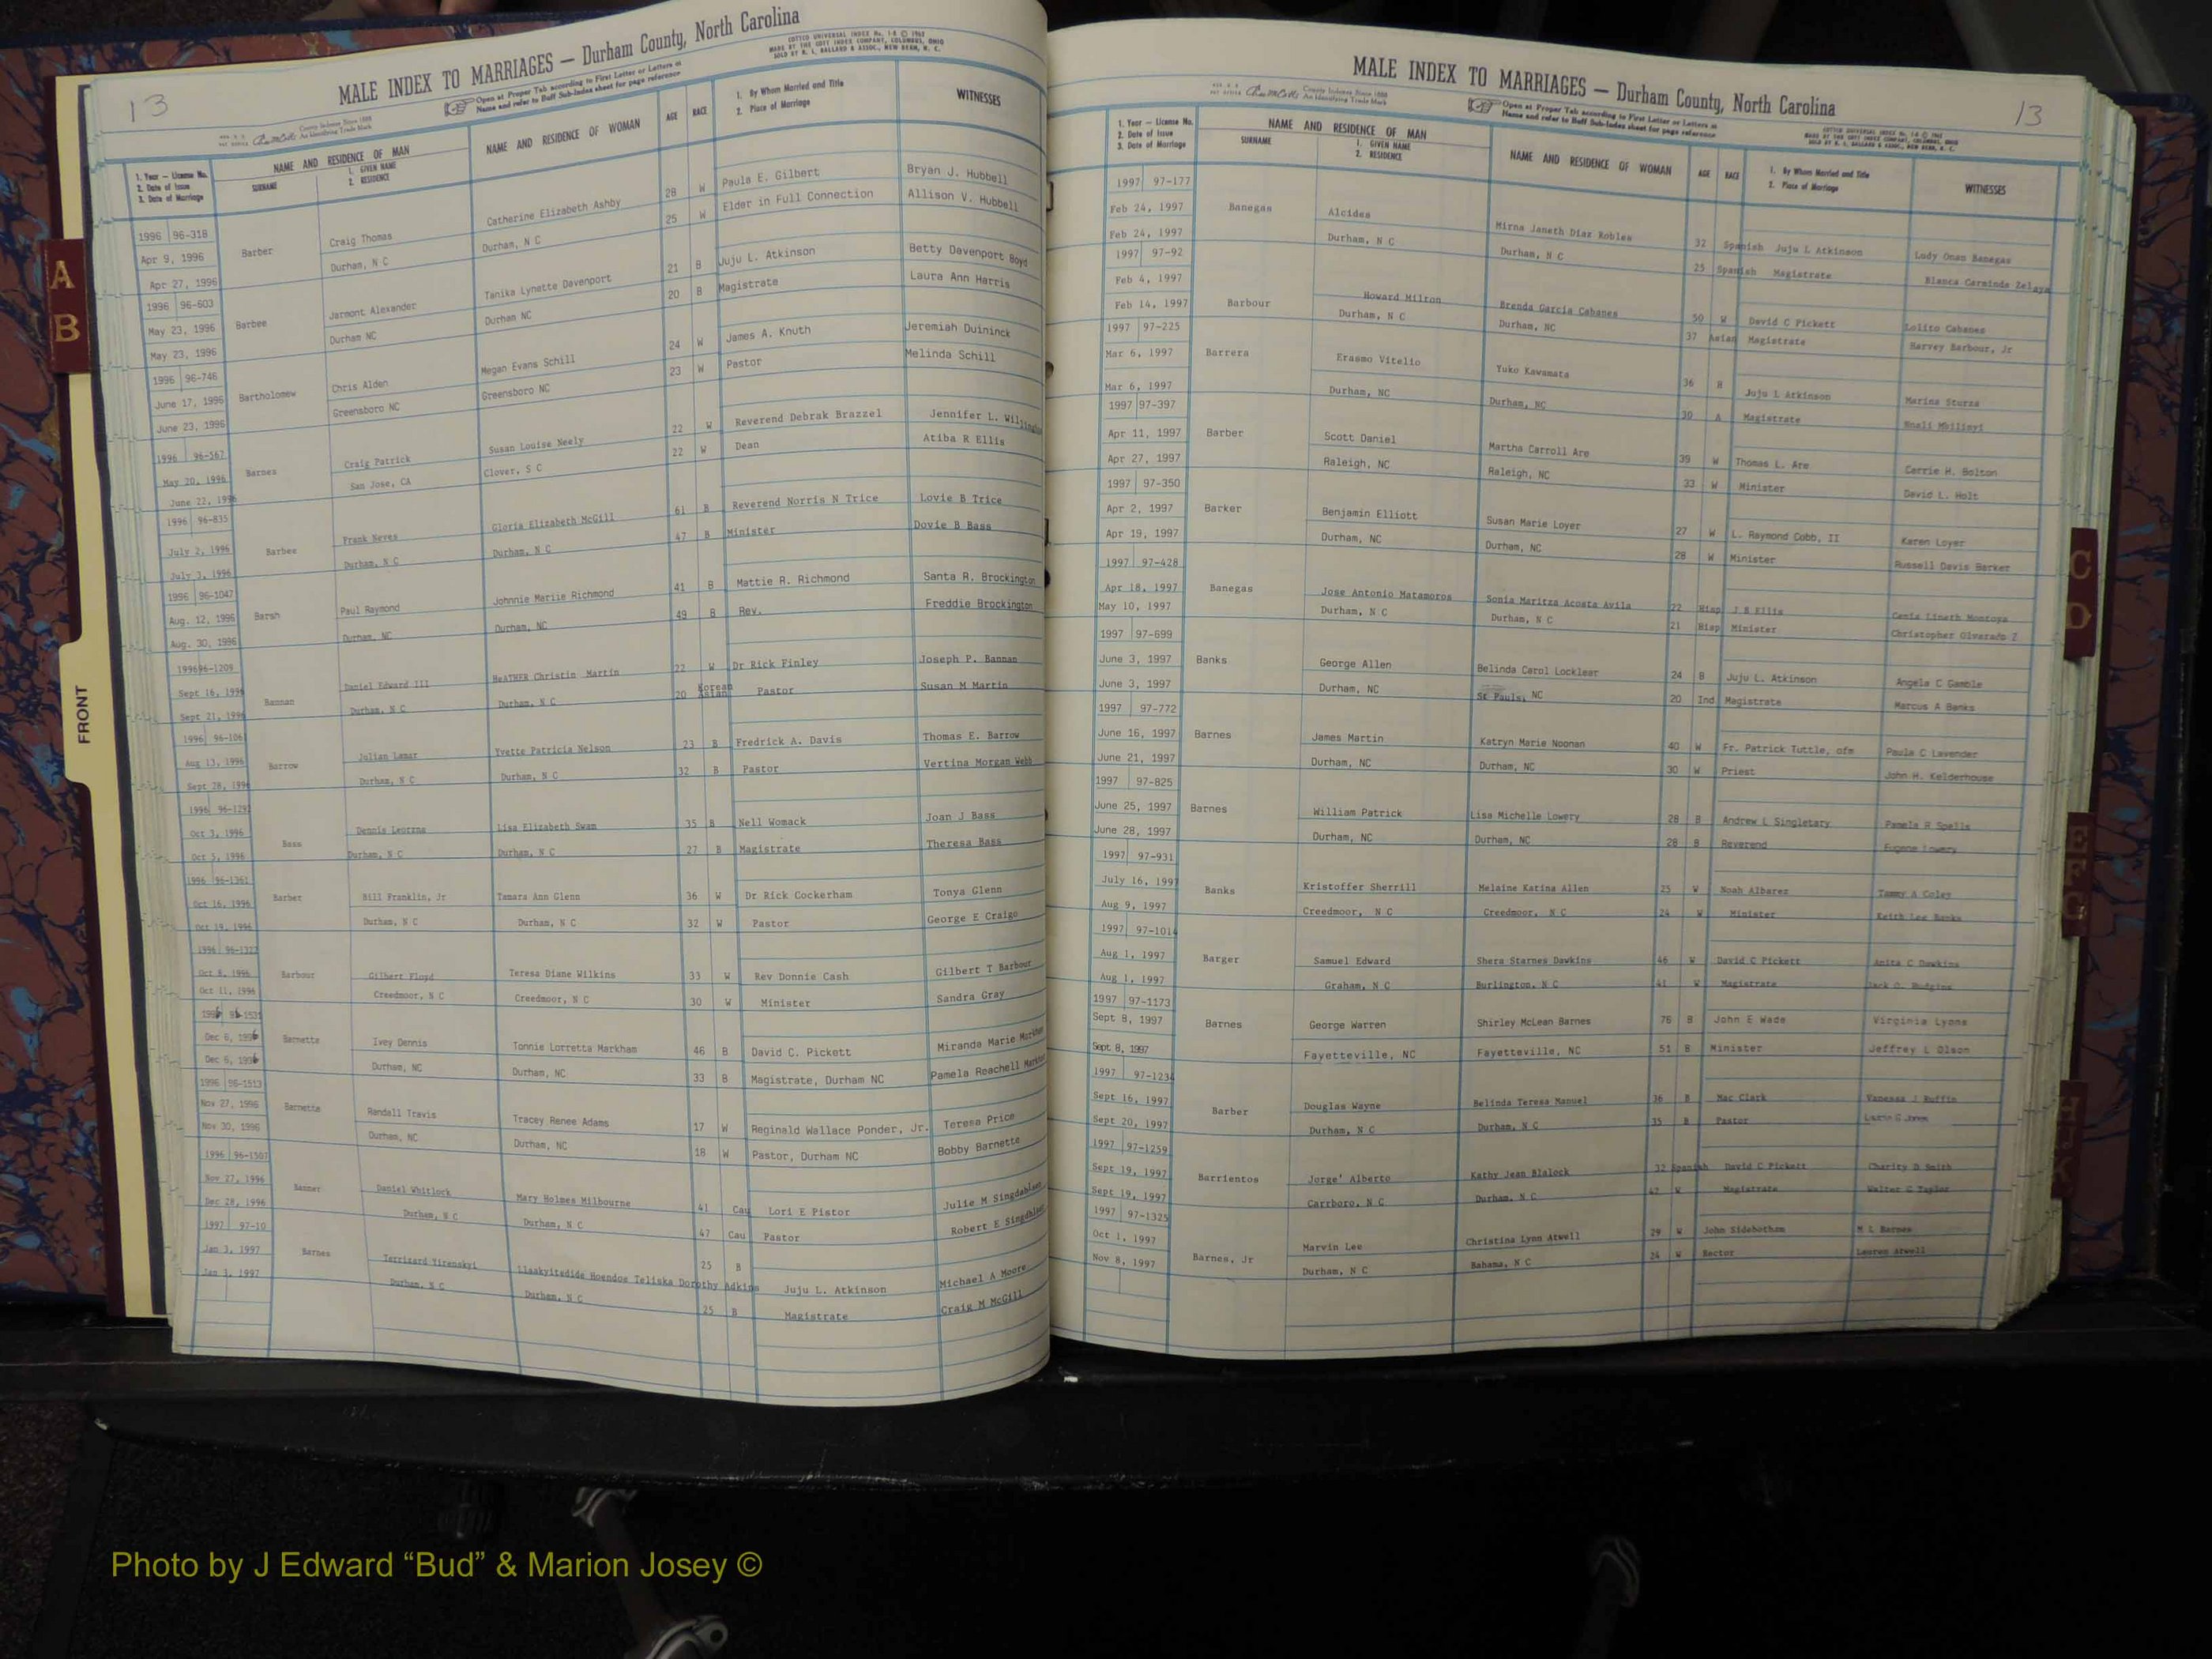 13
MALE INDEX TO MARRIAGES — Durham County, North Carolina
Open at Proper Tab according to First Letter or Letters of
Name and refer to Buff Sub-Index sheet for page reference
COTTCO UNIVERSAL INDEX No. 1-8 © 1962
MADE BY THE COTT INDEX COMPANY, COLUMBUS, OHIO
SOLD BY R. L. BALLARD & ASSOC., NEW BERN, N. C.
County Indexes Since 1888
An Identifying Trade Mark
1. Year — License No.
2. Date of Issue
3. Date of Marriage
NAME AND RESIDENCE OF MAN
SURNAME
1. GIVEN NAME
2. RESIDENCE
NAME AND RESIDENCE OF WOMAN
AGE
RACE
1. By Whom Married and Title
2. Place of Marriage
WITNESSES
1996 96-318 Apr 9, 1996 Apr 27, 1996
Barber Craig Thomas Catherine Elizabeth Ashby 28 W Paula E. Gilbert Bryan J. Hubbell
Durham, N C Durham, N C 25 W Elder in Full Connection Allison V. Hubbell
1996 96-603 May 23, 1996 May 23, 1996
Barbee Jarmont Alexander Tanika Lynette Davenport 21 B Juju L. Atkinson Betty Davenport Boyd
Durham NC Durham NC 20 B Magistrate Laura Ann Harris
1996 96-746 June 17, 1996 June 23, 1996
Bartholomew Chris Alden Megan Evans Schill 24 W James A. Knuth Jeremiah Duininck
Greensboro NC Greensboro NC 23 W Pastor Melinda Schill
1996 96-567 May 20, 1996 June 22, 1996
Barnes Craig Patrick Susan Louise Neely 22 W Reverend Debrak Brazzel Jennifer L.
San Jose, CA Clover, S C 22 W Dean Atiba R Ellis
1996 96-835 July 2, 1996 July 3, 1996
Barbee Frank Neves Gloria Elizabeth McGill 61 B Reverend Norris N Trice Lovie B Trice
Durham, N C Durham, N C 47 B Minister Dovie B Bass
1996 96-1047 Aug. 12, 1996 Aug. 30, 1996
Barah Paul Raymond Johnnie Mariie Richmond 41 B Mattie R. Richmond Santa R. Brockington
Durham, NC Durham, NC 49 B Rev. Freddie Brockington
199696-1209 Sept 16, 1996 Sept 21, 1996
Bannan Daniel Edward III HeATHER Christin Martin 22 W Dr Rick Finley Joseph P. Bannan
Durham, N C Durham, N C 20 Korean Asian Pastor Susan M Martin
1996 96-106 Aug 13, 1996 Sept 28, 1996
Barrow Julian Lamar Yvette Patricia Nelson 23 B Fredrick A. Davis Thomas E. Barrow
Durham, N C Durham, N C 32 B Pastor Vertina Morgan Webb
1996 96-129 Oct 3, 1996 Oct 5, 1996
Bass Dennis Leorzna Lisa Elizabeth Swam 35 B Nell Womack Joan J Bass
Durham, N C Durham, N C 27 B Magistrate Theresa Bass
1996 96-1361 Oct 16, 1996 Oct 19, 1996
Barber Bill Franklin, Jr Tamara Ann Glenn 36 W Dr Rick Cockerham Tonya Glenn
Durham, N C Durham, N C 32 W Pastor George E Craigo
1996 96-1322 Oct 8, 1996 Oct 11, 1996
Barbour Gilbert Floyd Teresa Diane Wilkins 33 W Rev Donnie Cash Gilbert T Barbour
Creedmoor, N C Creedmoor, N C 30 W Minister Sandra Gray
1996 96-1531 Dec 6, 1996 Dec 6, 1996
Barnette Ivey Dennis Tonnie Lorretta Markham 46 B David C. Pickett Miranda Marie Markham
Durham, NC Durham, NC 33 B Magistrate, Durham NC Pamela Roachell Markham
1996 96-1513 Nov 27, 1996 Nov 30, 1996
Barnette Randall Travis Tracey Renee Adams 17 W Reginald Wallace Ponder, Jr. Teresa Price
Durham, NC Durham, NC 18 W Pastor, Durham NC Bobby Barnette
1996 96-1507 Nov 27, 1996 Dec 28, 1996
Banner Daniel Whitlock Mary Holmes Milbourne 41 Cau Lori E Pistor Julie M Singdahlsen
Durham, N C Durham, N C 47 Cau Pastor Robert E Singdhlsen
1997 97-10 Jan 3, 1997 Jan 3, 1997
Barnes Terrizard Yirenskyi Hoendos Teliska Dorothy Adkins 25 B Juju L. Atkinson Michael A Moore
Durham, N C Durham, N C 25 B Magistrate Craig M McGill
MALE INDEX TO MARRIAGES — Durham County, North Carolina
13
Open at Proper Tab according to First Letter or Letters of
Name and refer to Buff Sub-Index sheet for page reference
COTTCO UNIVERSAL INDEX No. 1-8 © 1962
MADE BY THE COTT INDEX COMPANY, COLUMBUS, OHIO
SOLD BY R. L. BALLARD & ASSOC., NEW BERN, N. C.
County Indexes Since 1888
An Identifying Trade Mark
1. Year — License No.
2. Date of Issue
3. Date of Marriage
NAME AND RESIDENCE OF MAN
SURNAME
1. GIVEN NAME
2. RESIDENCE
NAME AND RESIDENCE OF WOMAN
AGE
RACE
1. By Whom Married and Title
2. Place of Marriage
WITNESSES
1997 97-177 Feb 24, 1997 Feb 24, 1997
Banegas Alcides Mirna Janeth Diaz Robles 32 Spanish Juju L Atkinson Ludy Onan Banegas
Durham, N C Durham, N C 25 Spanish Magistrate Blanca Carminda Zelaya
1997 97-92 Feb 4, 1997 Feb 14, 1997
Barbour Howard Milton Brenda Garcia Cabanes 50 W David C Pickett Lolito Cabanes
Durham, N C Durham, NC 37 Asian Magistrate Harvey Barbour, Jr
1997 97-225 Mar 6, 1997 Mar 6, 1997
Barrera Erasmo Vitelio Yuko Kawamata 36 H Juju L Atkinson Marina Sturza
Durham, NC Durham, NC 30 A Magistrate Nnali Mbilinyi
1997 97-397 Apr 11, 1997 Apr 27, 1997
Barber Scott Daniel Martha Carroll Are 39 W Thomas L. Are Carrie H. Bolton
Raleigh, NC Raleigh, NC 33 W Minister David L. Holt
1997 97-350 Apr 2, 1997 Apr 19, 1997
Barker Benjamin Elliott Susan Marie Loyer 27 W L. Raymond Cobb, II Karen Loyer
Durham, NC Durham, NC 28 W Minister Russell Davis Barker
1997 97-428 Apr 18, 1997 May 10, 1997
Banegas Jose Antonio Matamoros Sonia Maritza Acosta Avila 22 Hisp J B Ellis Lineth Montoya
Durham, N C Durham, N C 21 Hisp Minister Christopher Olvarado Z
1997 97-699 June 3, 1997 June 3, 1997
Banks George Allen Belinda Carol Locklear 24 B Juju L. Atkinson Angela C Gamble
Durham, NC St Pauls, NC 20 Ind Magistrate Marcus A Banks
1997 97-772 June 16, 1997 June 21, 1997
Barnes James Martin Katryn Marie Noonan 40 W Fr. Patrick Tuttle, ofm Paula C Lavender
Durham, NC Durham, NC 30 W Priest John H. Kelderhouse
1997 97-825 June 25, 1997 June 28, 1997
Barnes William Patrick Lisa Michelle Lowery 28 B Andrew L Singletary Pamela R Spells
Durham, NC Durham, NC 28 B Reverend Eugene Lowery
1997 97-931 July 16, 1997 Aug 9, 1997
Banks Kristoffer Sherrill Melaine Katina Allen 25 W Noah Albarez Tammy A Coley
Creedmoor, N C Creedmoor, N C 24 W Minister Keith Lee Banks
1997 97-1014 Aug 1, 1997 Aug 1, 1997
Barger Samuel Edward Shera Starnes Dawkins 46 W David C Pickett Anita C Dawkins
Graham, N C Burlington, N C 41 W Magistrate Jack O. Hudgins
1997 97-1173 Sept 8, 1997 Sept 8, 1997
Barnes George Warren Shirley McLean Barnes 76 B John E Wade Virginia Lyons
Fayetteville, NC Fayetteville, NC 51 B Minister Jeffrey L Olson
1997 97-1234 Sept 16, 1997 Sept 20, 1997
Barber Douglas Wayne Belinda Teresa Manuel 36 B Mac Clark Vanessa J Ruffin
Durham, N C Durham, N C 35 B Pastor
1997 97-1259 Sept 19, 1997 Sept 19, 1997
Barrientos Jorge' Alberto Kathy Jean Blalock 32 Spanish David C Pickett Charity D Smith
Carrboro, N C Durham, N C 42 W Magistrate Walter G Taylor
1997 97-1325 Oct 1, 1997 Nov 8, 1997
Barnes, Jr Marvin Lee Christina Lynn Atwell 29 W John Sidebotham M L Barnes
Durham, N C Bahama, N C 24 W Rector Lauren Atwell
A
B
FRONT
C
D
E
F
G
H
Photo by J Edward “Bud” & Marion Josey ©